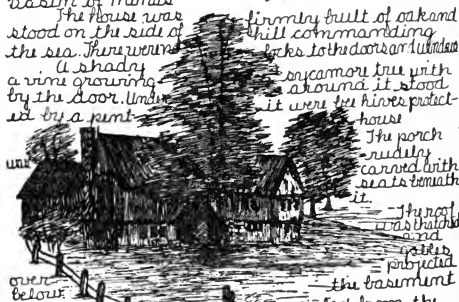 basin of minas
The house was firmly built of oak and
stood on the side of hill commanding
the sea. There were no locks to the doors and windows
A shady sycamore tree with
a vine growing around it stood
by the door. Under it were bee hives protect-
ed by a pent- house
The porch
rudely
carved with
seats beneath
it.
The roof
was thatched
and
gables
projected
over the basement
below.
from the